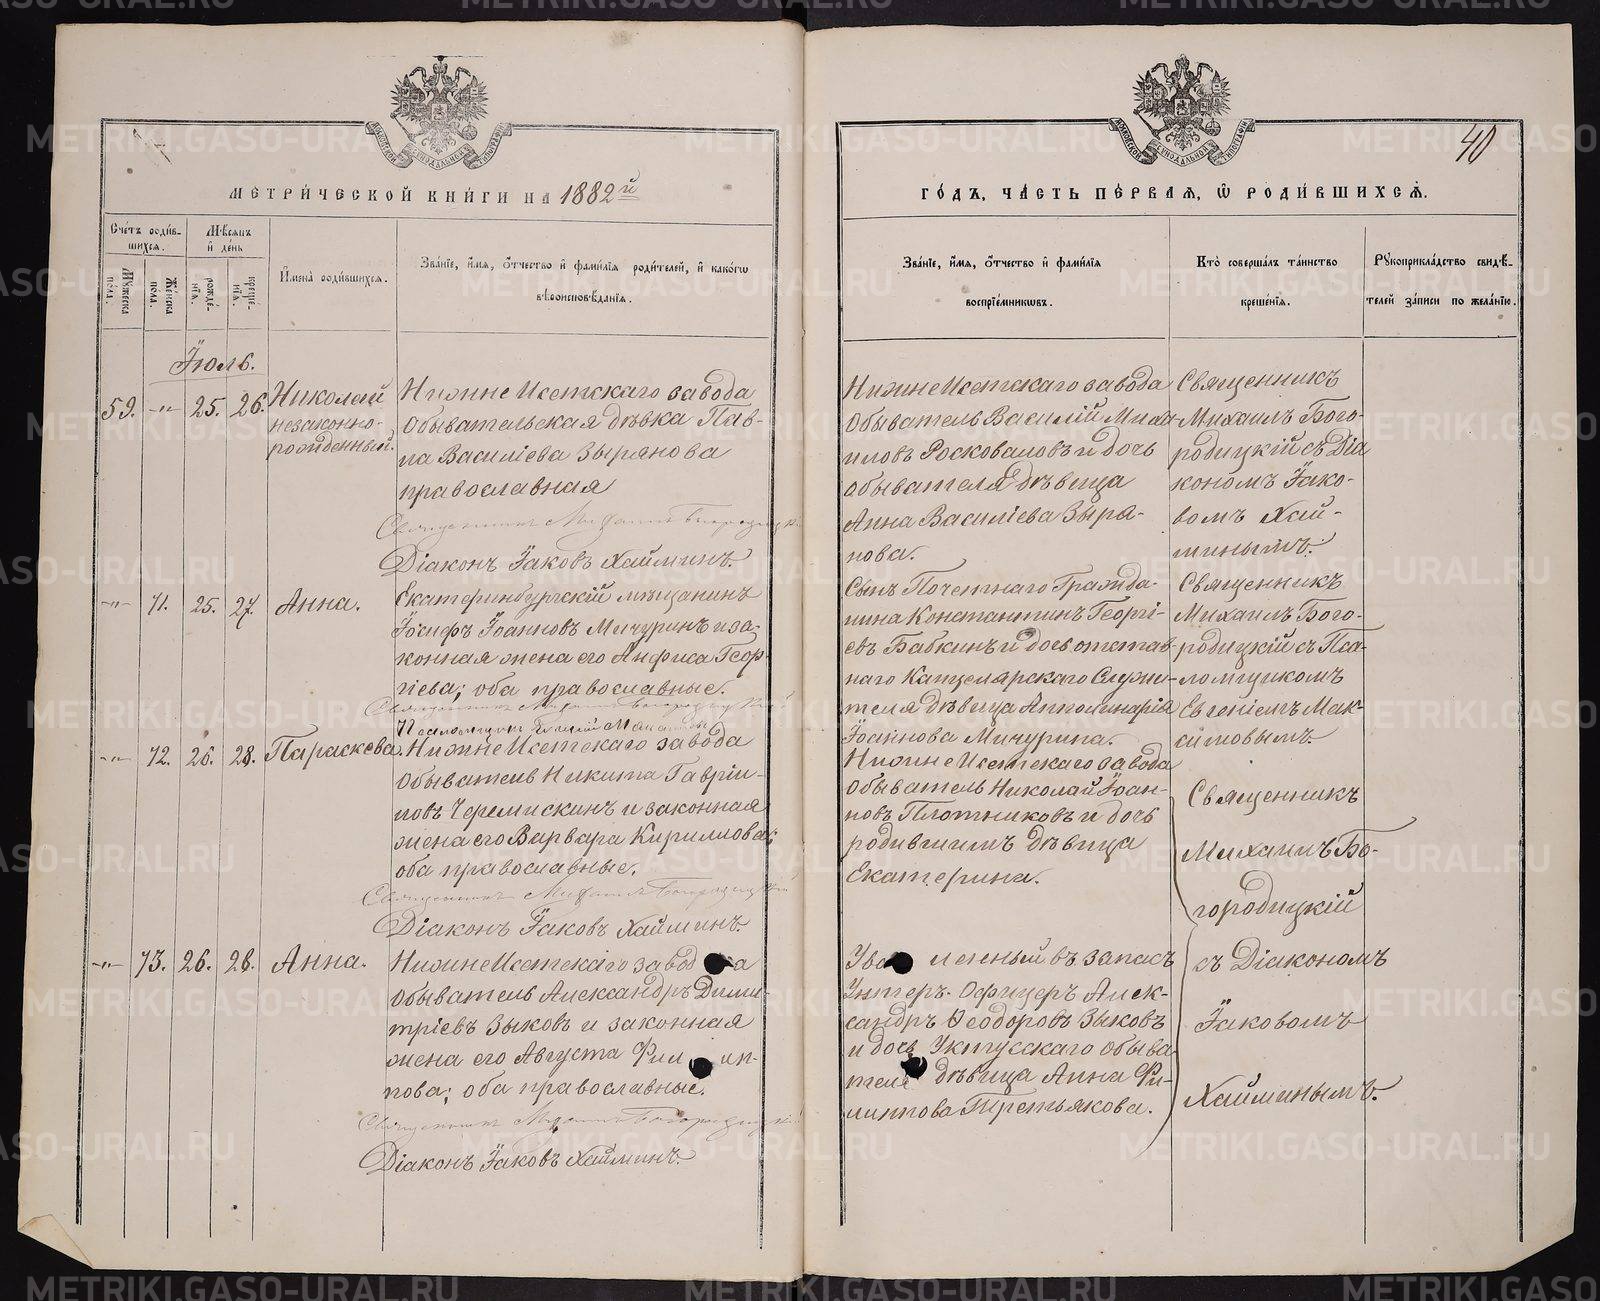 МЕТРИ́ЧЕСКОЙ КНИ́ГИ НА 1882й
Сче́тъ роди́в-
шихсѧ.
Мѣ́сяцъ
и де́нь
Му́жеска
по́ла.
Же́нска
по́ла.
рожде́-
нїѧ.
креще́-
нїѧ.
И́мена̀ роди́вшихсѧ.
Зва́нїе, и́мѧ, ѻ́тчество и фамилїѧ роди́телей, и како́гѡ
вѣроисповѣ́данїѧ.
Іюль.
59. -"- 25. 26. Николай
незаконно-
рожденный.
НижнеИсетскаго завода
обывательская дѣвка Пав-
ла Василіева Зырянова
православная
Священникъ Михаилъ Богородицкій
Діаконъ Іаковъ Хайминъ.
-"- 71. 25. 27. Анна.
Екатеринбургскій мѣщанинъ
Іосифъ Іоанновъ Мичуринъ и за-
конная жена его Анфиса Геор-
гіева; оба православные.
Священникъ Михаилъ Богородицкій
Псаломщикъ Евгеній Максимовъ
-"- 72. 26. 28. Параскева.
НижнеИсетскаго завода
обыватель Никита Гаврiи-
ловъ Черемискинъ и законная
жена его Варвара Кириллова;
оба православные.
Священникъ Михаилъ Богородицкій
Діаконъ Іаковъ Хайминъ.
-"- 73. 26. 28. Анна.
НижнеИсетскаго завода
обыватель Александръ Дими-
тріевъ Зыковъ и законная
жена его Августа Филип-
пова; оба православные.
Священникъ Михаилъ Богородицкій
Діаконъ Іаковъ Хайминъ.
40
ГО́ДЪ, ЧА́СТЬ ПЕ́РВАѦ, Ѡ РОДИ́ВШИХСѦ.
Зва́нїе, и́мѧ, ѻ́тчество и фами́лїѧ
воспрїе́мникѡвъ.
Кто̀ соверша́лъ та́инство
креще́нїѧ.
Рꙋкоприкла́дство свидѣ́-
телей за́писи по жела́нїю.
НижнеИсетскаго завода
обыватель Василій Миха-
иловъ Росковаловъ и дочь
обывателя дѣвица
Анна Василіева Зыря-
нова.
Священникъ
Михаилъ Бого-
родицкій съ Діа
кономъ Іако-
вомъ Хай-
минымъ.
Сынъ Почетнаго Гражда-
нина Константинъ Георгі-
евъ Бабкинъ и дочь отстав
наго Канцелярскаго Служи-
теля дѣвица Апполинарія
Іоаннова Мичурина.
Священникъ
Михаилъ Бого-
родицкій съ Пса-
ломщикомъ
Евгеніемъ Мак-
симовымъ.
НижнеИсетскаго завода
обыватель Николай Іоан-
новъ Плотниковъ и дочь
родившимъ дѣвица
Екатерина.
Священникъ
Михаилъ Бо-
городицкій
съ Діакономъ
Іаковомъ
Хайминымъ.
Уволенный въ запасъ
Унтеръ-Офицеръ Алек-
сандръ Ѳеодоровъ Зыковъ
и дочь Уктусскаго обыва-
теля дѣвица Анна Фи-
липпова Третьякова.
METRIKI.GASO-URAL.RU